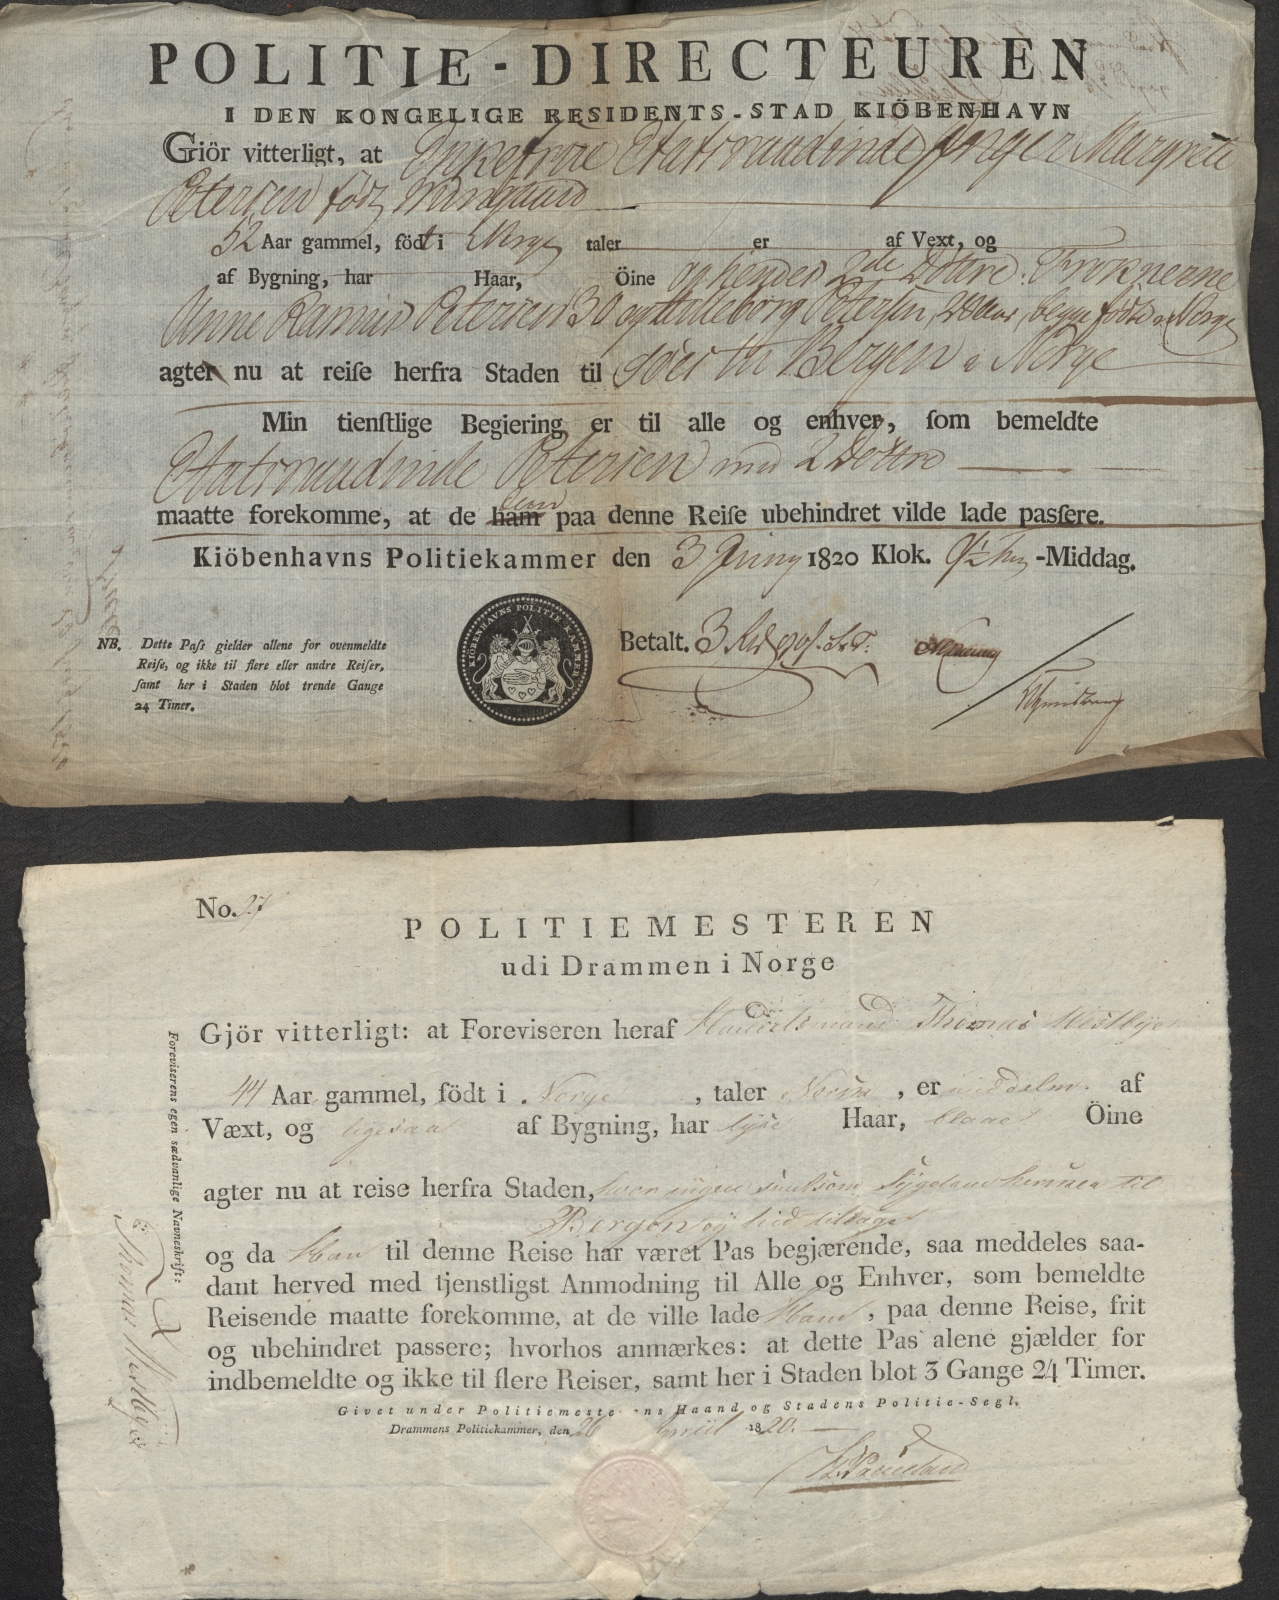 POLITIE-DIRECTEUREN
I DEN KONGELIGE RESIDENTS-STAD KIÖBENHAVN
Giör vitterligt, at Enkefrue Etatsraadinde Margrete
Petersen født
52 Aar gammel, födt i Norge taler er af Vext, og
af Bygning, har Haar, Öine 2de Döttre: Frøknerne
Anne Petersen 30 og Petersen, 28 Aar, begge fødte i Norge
agter nu at reiſe herfra Staden til Søes til Bergen i Norge
Min tienſtlige Begiering er til alle og enhver, ſom bemeldte
Etatsraadinde Petersen med 2 Døttre
maatte forekomme, at de ham paa denne Reiſe ubehindret vilde lade paſſere.
Kiöbenhavns Politiekammer den 3 Juny 1820 Klok. -Middag.
KIÖBENHAVNS POLITIE KAMMER
NB. Dette Paſs gielder allene for ovenmeldte
Reiſe, og ikke til flere eller andre Reiſer,
ſamt her i Staden blot trende Gange
24 Timer.
Betalt. 3
No. 27
POLITIEMESTEREN
udi Drammen i Norge
Gjör vitterligt: at Foreviseren heraf Handelsmand Thomas Westbye
44 Aar gammel, födt i Norge, taler Norsk, er middelm. af
Væxt, og ligesaa af Bygning, har lyse Haar, blaae Öine
agter nu at reise herfra Staden, hvor ingen smitsom Sygdom til
Bergen og hid tilbage
og da Han til denne Reise har været Pas begjærende, saa meddeles saa-
dant herved med tjenstligst Anmodning til Alle og Enhver, som bemeldte
Reisende maatte forekomme, at de ville lade Ham, paa denne Reise, frit
og ubehindret passere; hvorhos anmærkes: at dette Pas alene gjælder for
indbemeldte og ikke til flere Reiser, samt her i Staden blot 3 Gange 24 Timer.
Givet under Politiemesterens Haand og Stadens Politie-Segl,
Drammens Politiekammer, den 26 April 1820.
Foreviserens egen sædvanlige Navneskrift:
Thomas Westbye